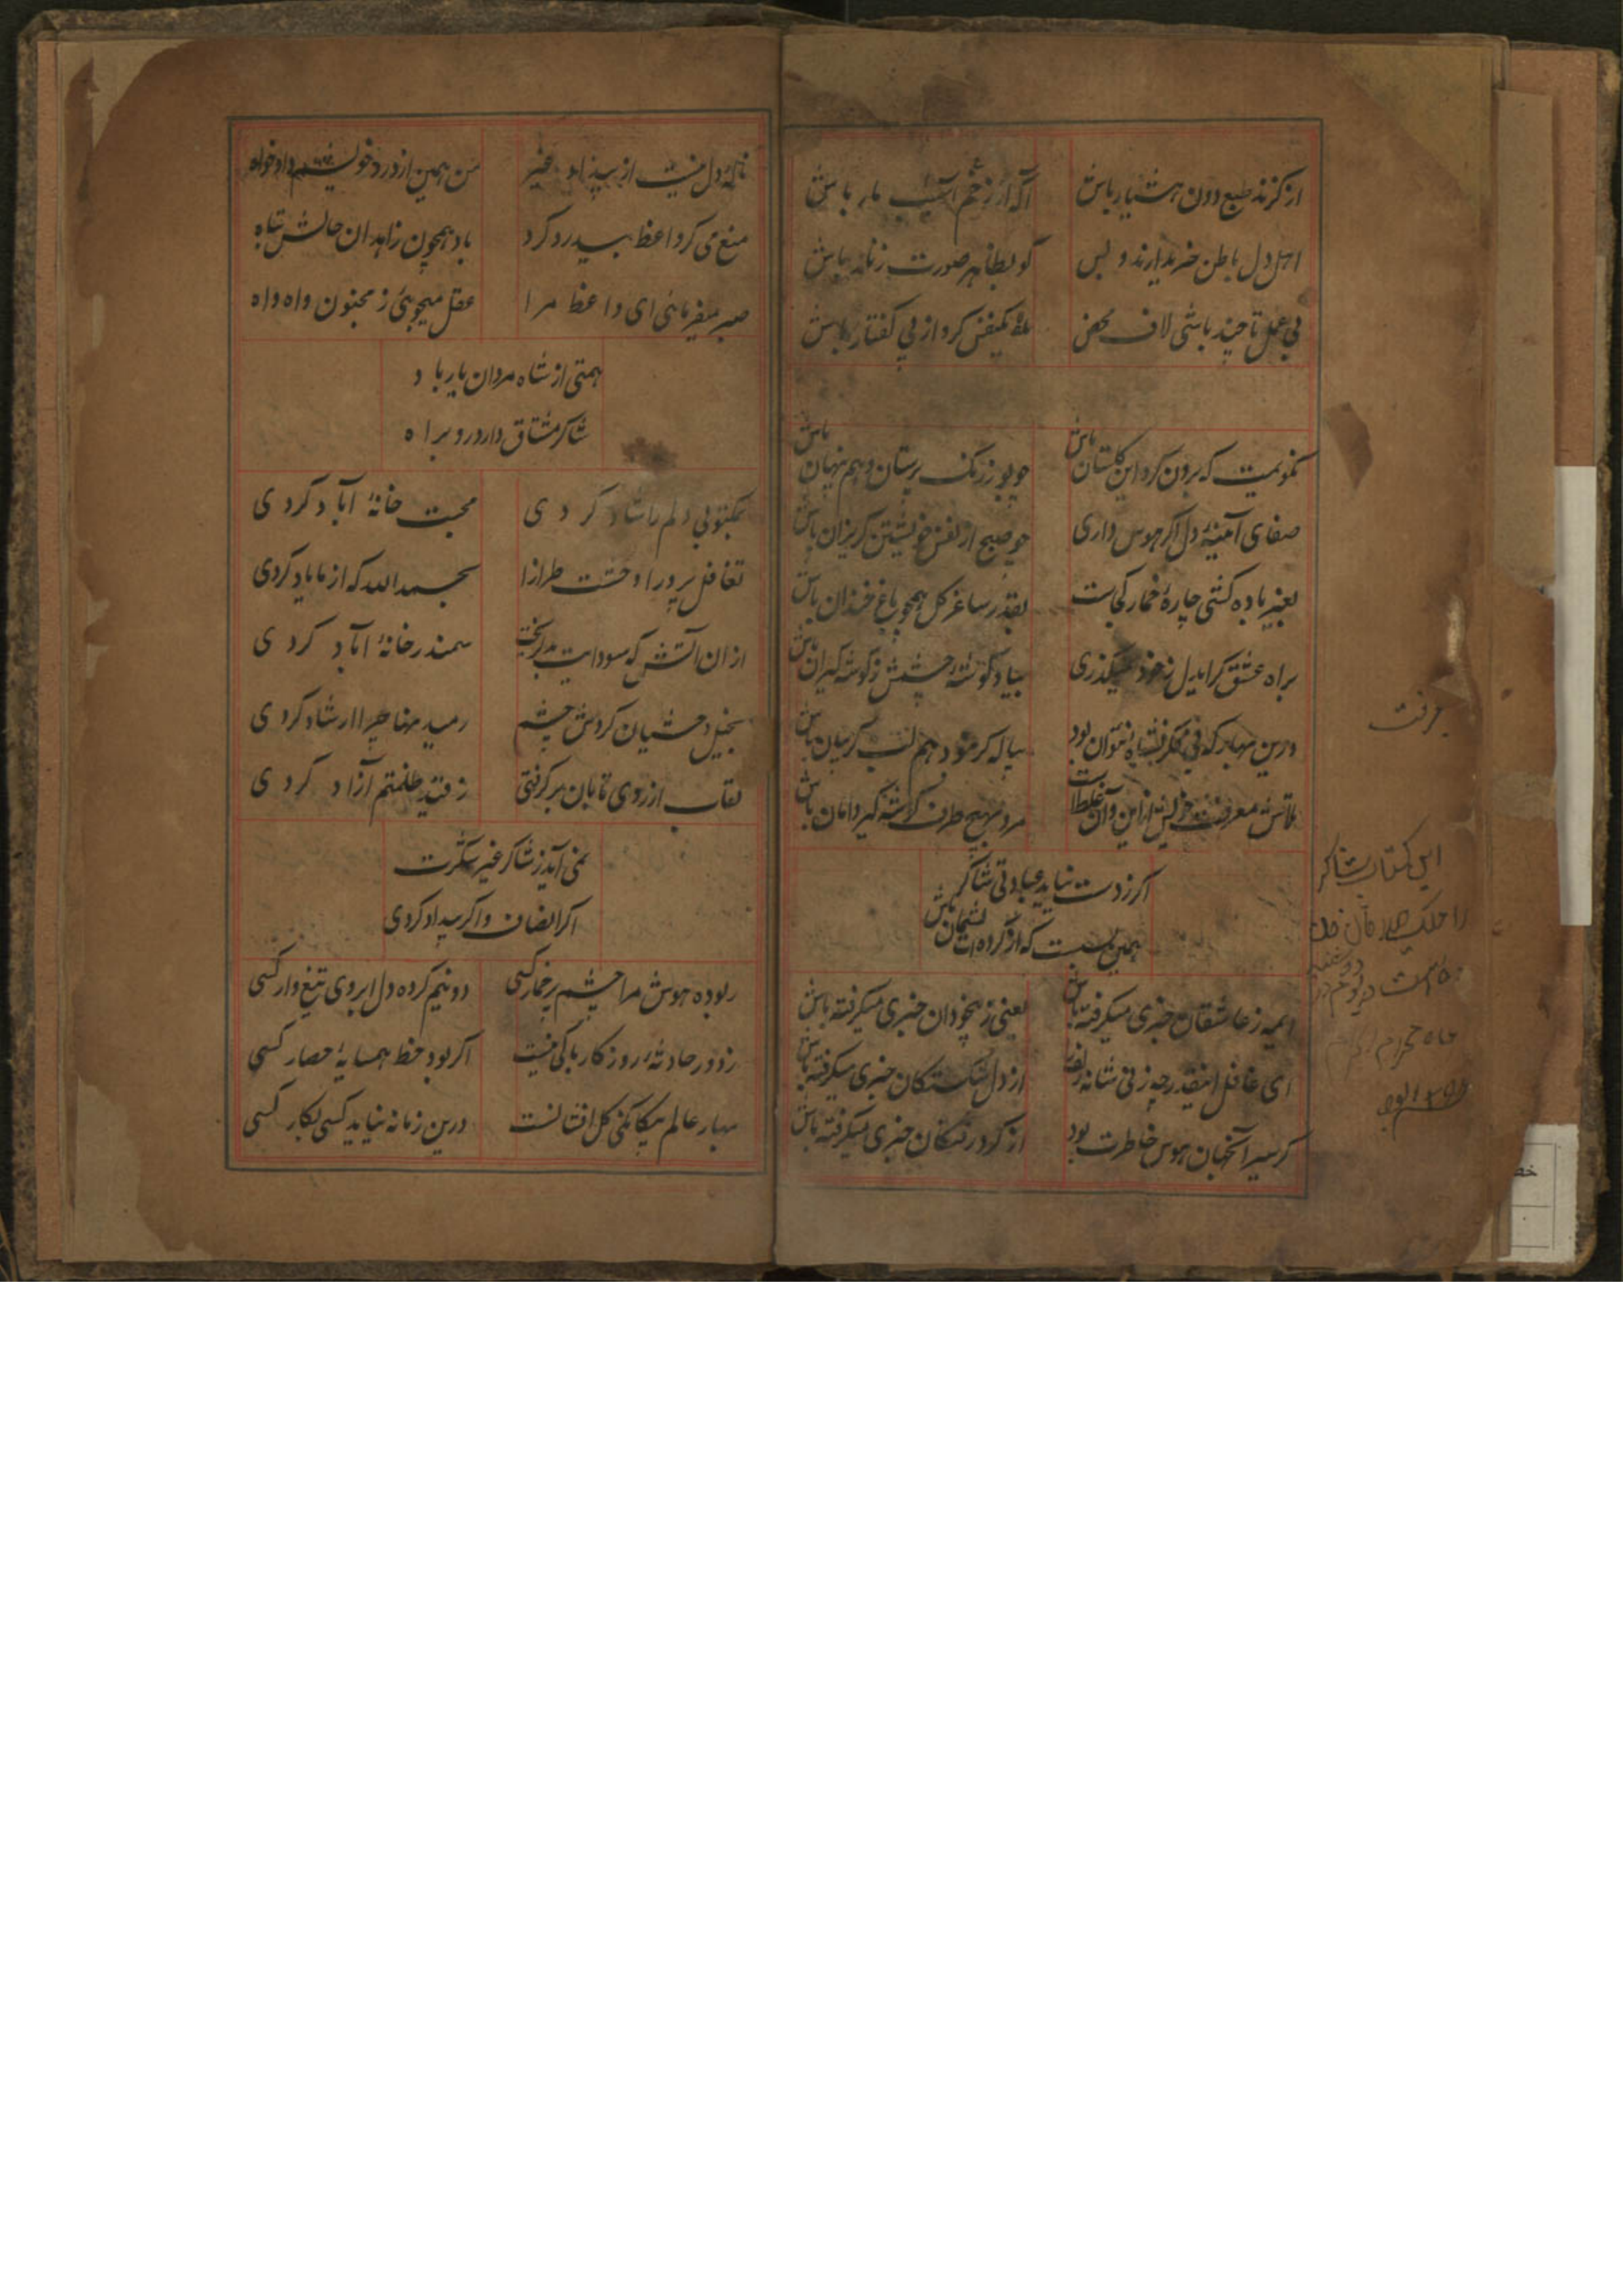 از گزند طبع دون هشیار باش
آگه از زخم آسیب مار باش
اهل دل باطن خریدارند و بس
گو بظاهر صورت زنار باش
بی عمل تا چند باشی لاف محض
یکنفس کردار بی گفتار باش
نگویمت که برون گرد این گلستان باش
چو بو ز رنگ پرستان وهم پنهان باش
صفای آمینهٔ دل اگر هوس داری
چو صبح از نفس خویشتن گریزان باش
بغیر باده کشی چارهٔ خمار کجاست
بقدر ساغر گل همچو باغ خندان باش
براه عشق گر ایدل ز خود میگذری
بیاد گوشهٔ چشمش ز گوشه گیران باش
درین بهار که بی فکر نتوان بود
پیاله گر نبود هم لب گریبان باش
تلاش معرفت خویش از این و آن غلط است
مرو بهیچ طرف گوشه گیر دامان باش
اگر ز دست نیاید عبادتی شاکر
همین بس است که از کرده ات پشیمان باش
ایمه ز عاشقان خبری میگرفته باش
یعنی ز بیخودان خبری میگرفته باش
ای غافل اینقدر چه زنی شانه زلف
از دل شکستگان خبری میگرفته باش
گر سیر آنجهان هوس خاطرت بود
از گرد رفتگان خبری میگرفته باش
معرفت
این کتاب شاکر
ماه محرم الحرام
نالهٔ دل نیست از بیداد غیر
من همین از درد خویشم دادخواه
منع می کرد واعظ بیدرد کرد
باد همچون زاهدان حالش تباه
صبر میفرمائی ای واعظ مرا
عقل میجوئی ز مجنون واه واه
همتی از شاه مردان یار باد
شاکر مشتاق دارد رو براه
بمکتوبی دلم را شاد کردی
محبت خانهٔ آباد کردی
تغافل پرورا وحشت طرازا
بحمدالله که از ما یاد کردی
ازان آتش که سودایت بدل ریخت
سمندر خانهٔ آباد کردی
بخیل وحشیان گردش چشم
رمیدنها چرا ارشاد کردی
نقاب از روی تابان برگرفتی
ز قید ظلمتم آزاد کردی
نمی آید ز شاکر غیر شکرت
اگر انصاف و اگر بیداد کردی
ربوده هوش مرا چشم پرخمار کسی
دو نیم کرده دل ابروی تیغ وار کسی
ز دور حادثهٔ روزگار باکی نیست
اگر بود خط همسایهٔ حصار کسی
بهار عالم بیگانگی گل افشانست
درین زمانه نیاید کسی بکار کسی